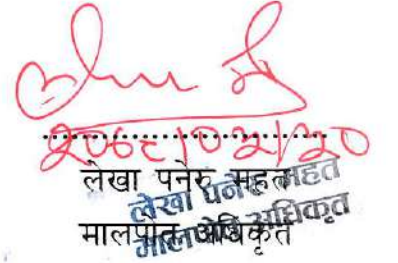 २०८१०२/२०
लेखा पनेरु महत
लेखा पनेरु महत
मालपोत अधिकृत
मालपोत अधिकृत